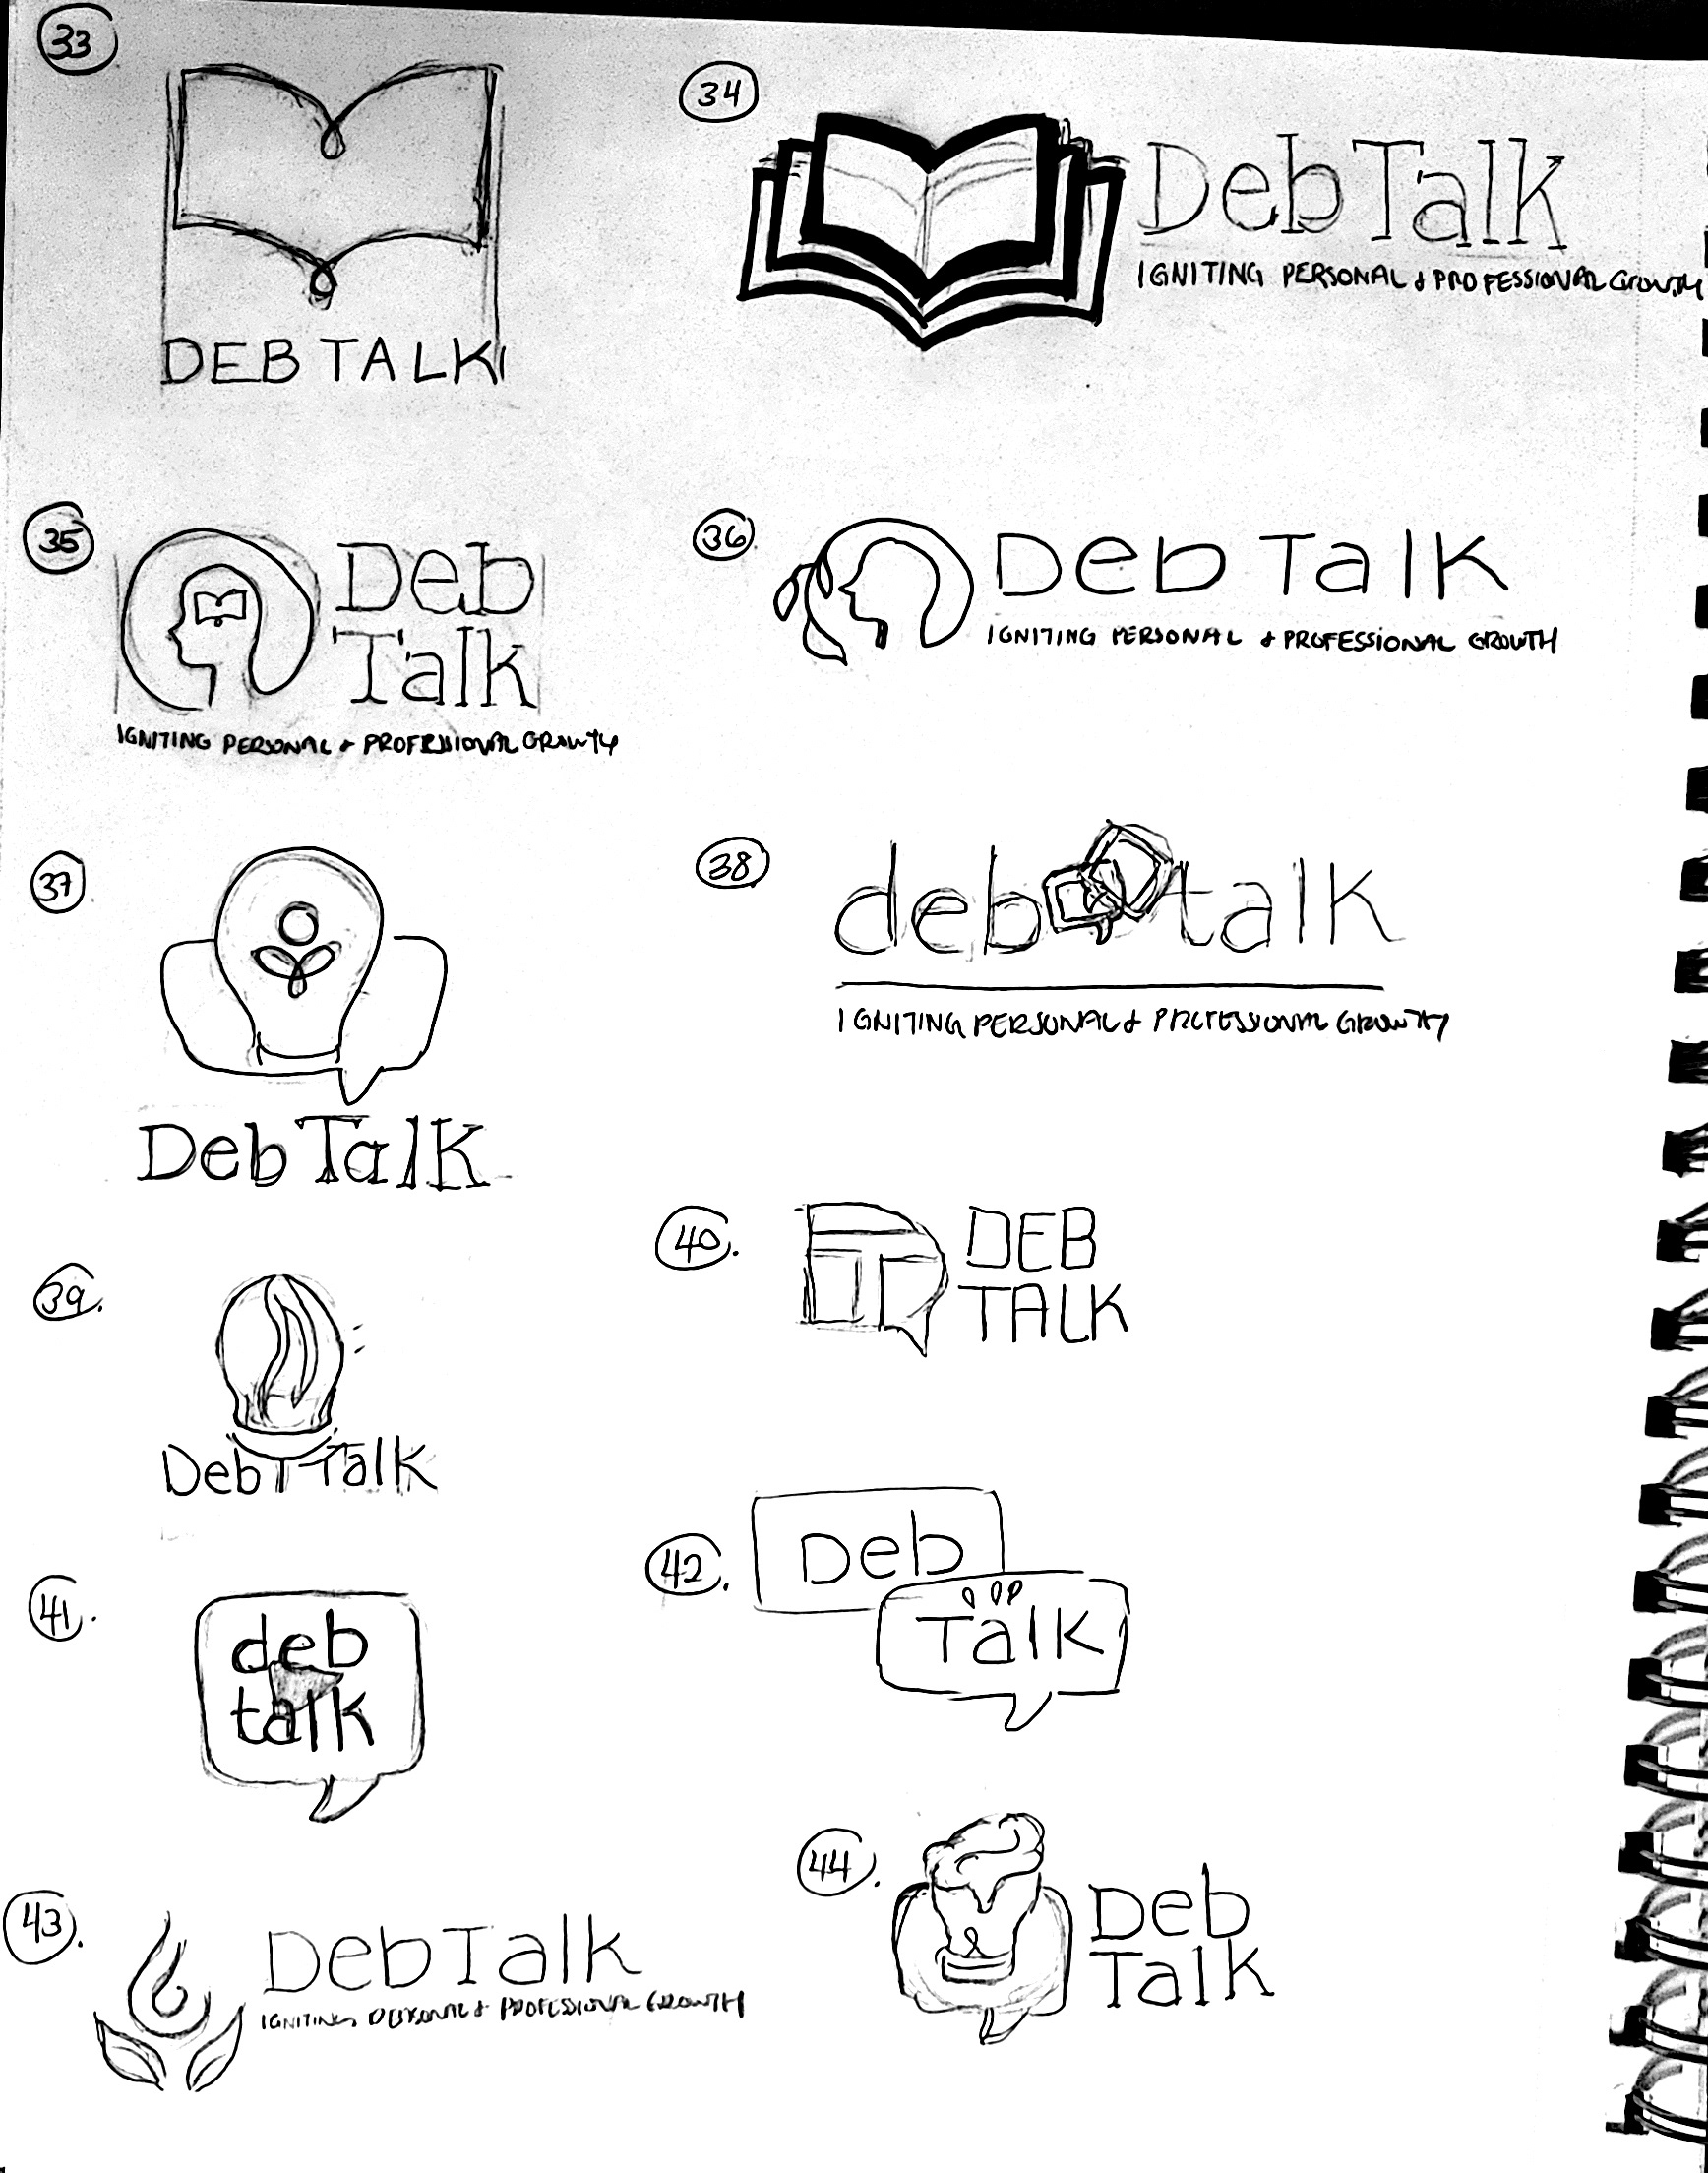 33
DEB TALK
34
DebTalk
IGNITING PERSONAL & PROFESSIONAL GROWTH
35
Deb
Talk
IGNITING PERSONAL & PROFESSIONAL GROWTH
36
Deb Talk
IGNITING PERSONAL & PROFESSIONAL GROWTH
37
Deb Talk
38
deb talk
IGNITING PERSONAL & PROFESSIONAL GROWTH
39.
Deb Talk
40.
DEB
TALK
41.
deb
talk
42.
Deb
Talk
43.
DebTalk
IGNITING PERSONAL & PROFESSIONAL GROWTH
44.
Deb
Talk